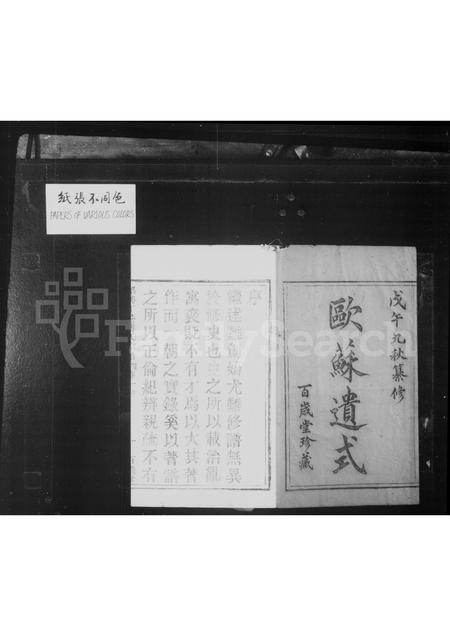 紙張不同色
PAPERS OF VARIOUS COLORS
FamilySearch
戊午九秋纂修
歐蘇遺式
百歲堂珍藏
序
述難創始尤難修譜無異
於修史也史之所以載治亂
寓褒貶不有才烏以大其著
作而一朝之實錄奚以著譜
之所以正倫紀辨親疎不有